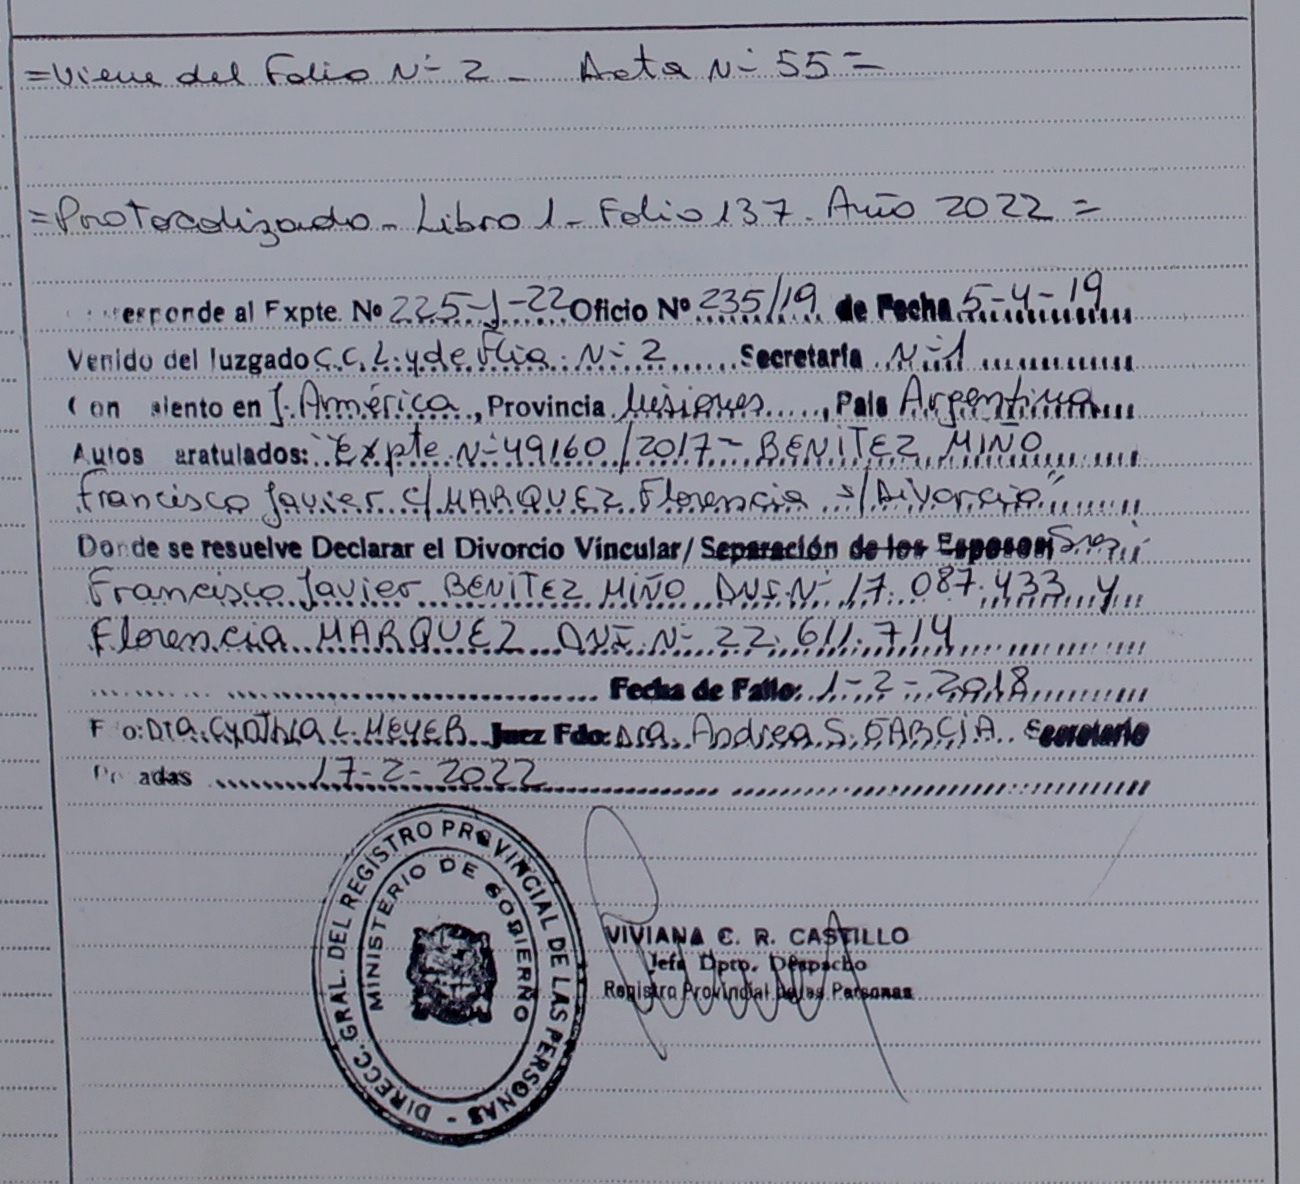 =Viene del Folio Nº 2 - Acta Nº 55=
=Protocolizado - Libro 1 - Folio 137. Año 2022 =
esponde al Expte. Nº 225-J-22 Oficio Nº 235/19 de Fecha 5-4-19
Venido del Juzgado C.C.L. y de Flia. Nº 2 Secretaría Nº 1
Con siento en J. América, Provincia Misiones, País Argentina
Autos aratulados: "Expte Nº 49160/2017 - BENITEZ MIÑO
Francisco Javier c/ MARQUEZ Florencia s/ Divorcio"
Donde se resuelve Declarar el Divorcio Vincular/ Separación de los Esposos Sres:
Francisco Javier BENITEZ MIÑO DNI. Nº 17.087.433 y
Florencia MARQUEZ DNI. Nº 22.611.714
Fecha de Fallo: 1-2-2018
F o: Dra. Cynthia L. MEYER Juez Fdo: Dra. Andrea S. GARCIA Secretario
adas 17-2-2022
DIRECC. GRAL. DEL REGISTRO PROVINCIAL DE LAS PERSONAS -
MINISTERIO DE GOBIERNO
VIVIANA C. R. CASTILLO
Jefa Dpto. Despacho
Registro Provincial de las Personas